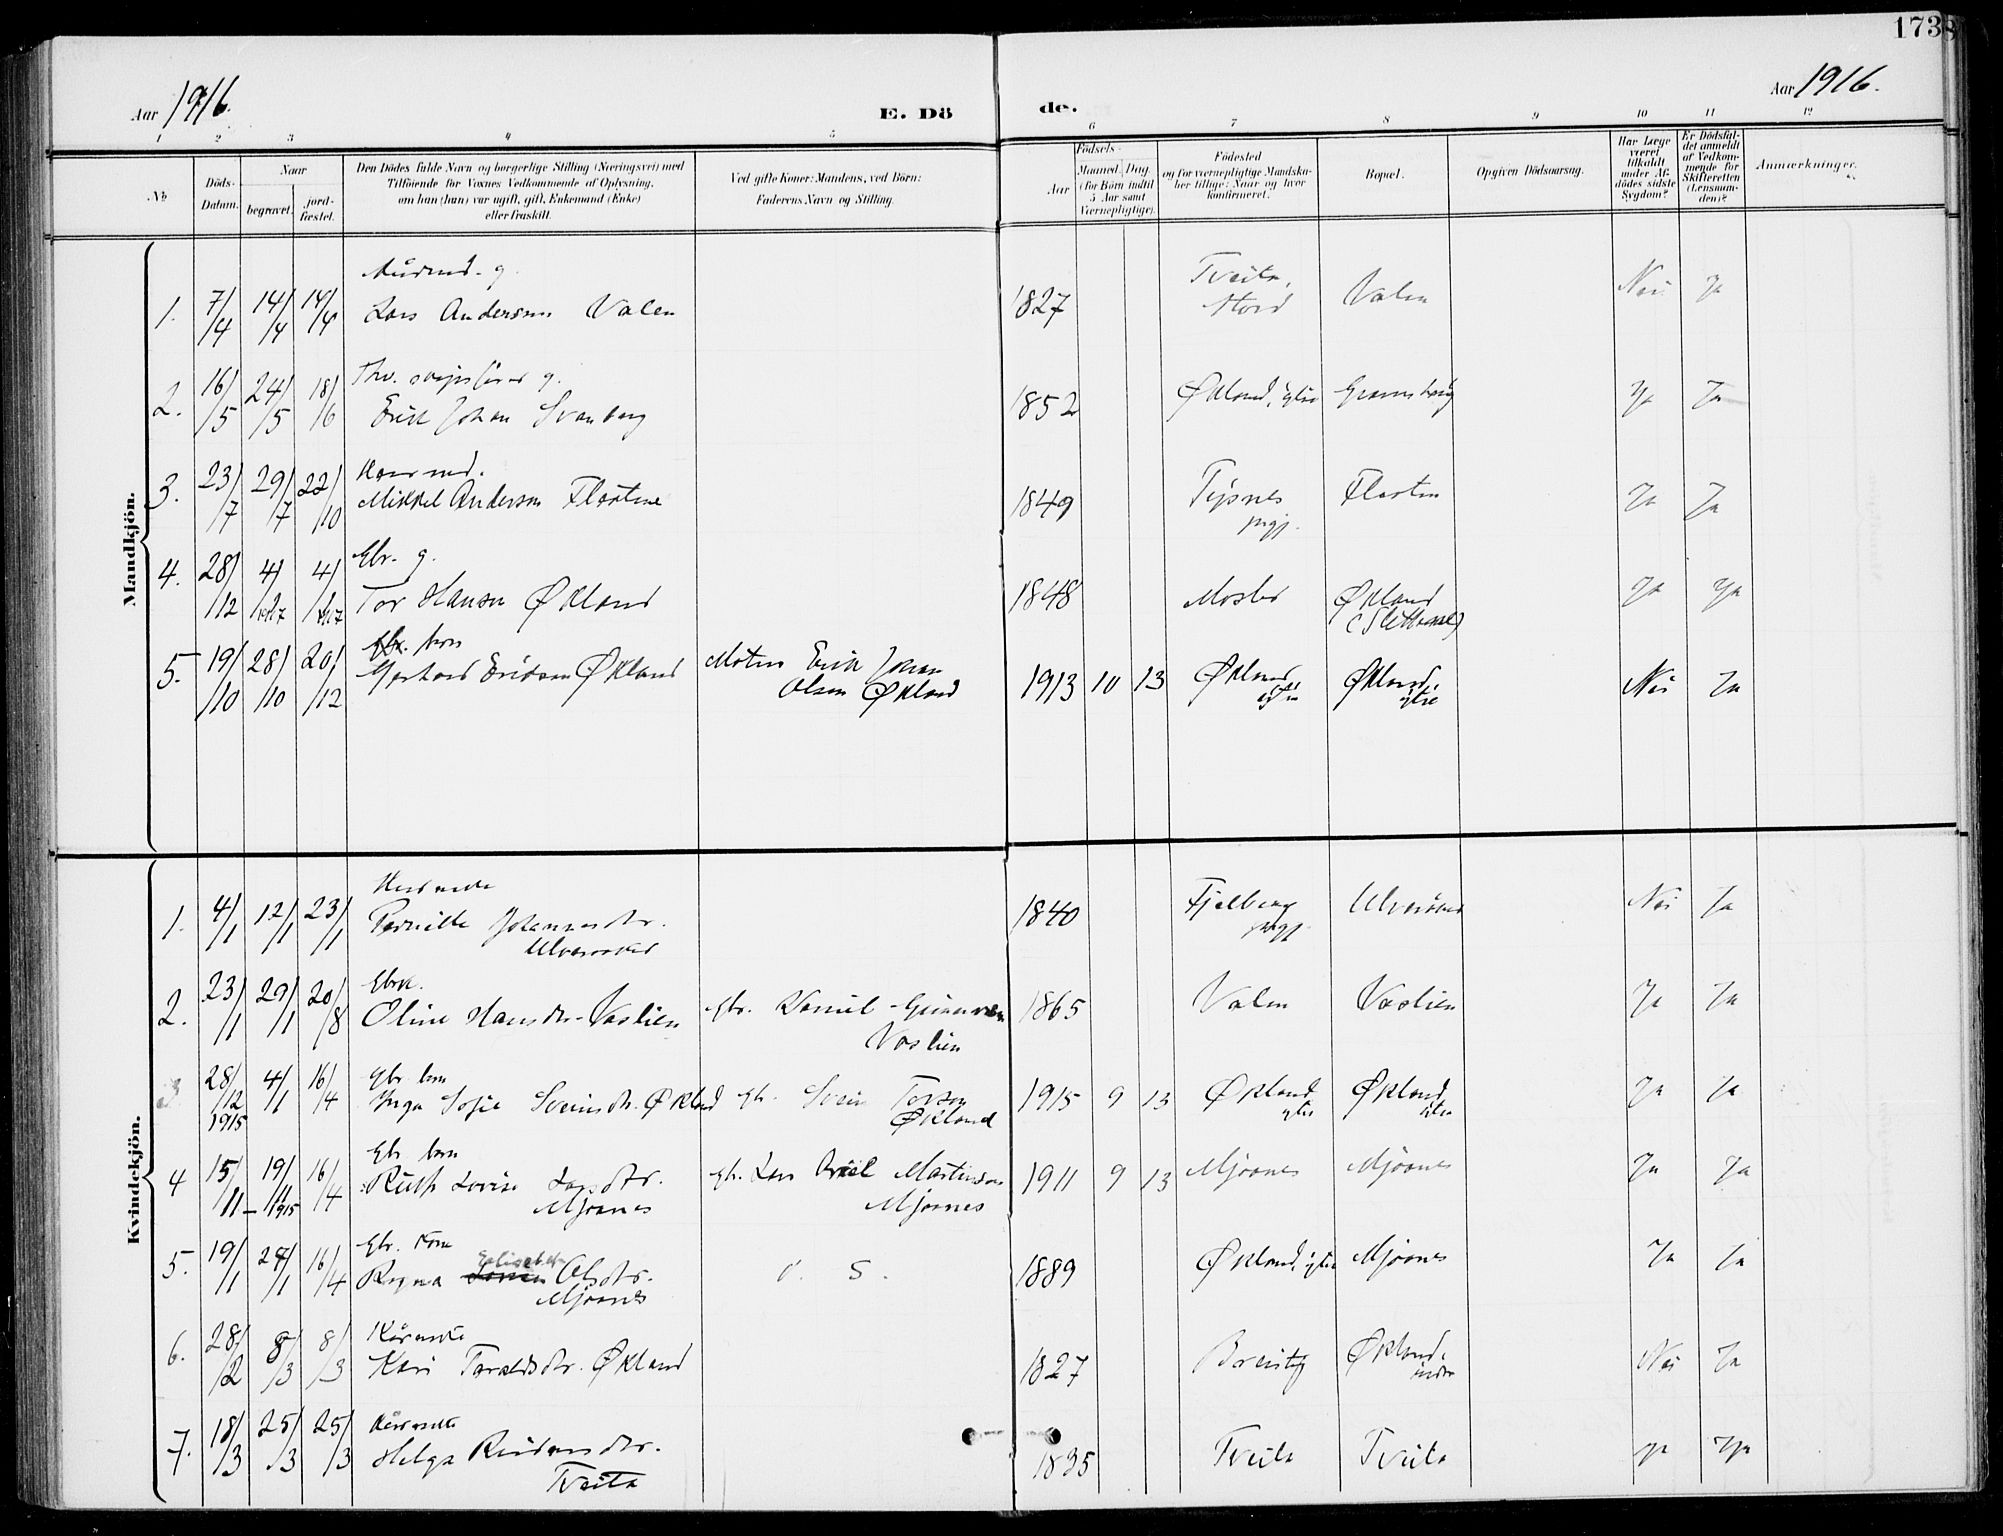 1738
Aar 1916.
E. Döde.
Aar 1916.
1 2 3 4 5 6 7 8 9 10 11 12
No.
Döds-Datum.
Naar
begravet.
jord-fæstet.
Den Dödes fulde Navn og borgerlige Stilling (Næringsvei) med
Tilföiende for Voxnes Vedkommende af Oplysning,
om han (hun) var ugift, gift, Enkemand (Enke)
eller fraskilt.
Ved gifte Koner: Mandens, ved Börn:
Faderens Navn og Stilling.
Födsels-
Aar
Maaned. Dag.
(for Börn indtil
5 Aar samt
Værnepligtige).
Födested
og for værnepligtige Mandska-
ber tillige: Naar og hvor
konfirmeret.
Bopæl.
Opgiven Dödsaarsag.
Har Læge
været
tilkaldt
under Af-
dödes sidste
Sygdom?
Er Dödsfal-
det anmeldt
af Vedkom-
mende for
Skifteretten
(Lensman-
den)?
Anmærkninger.
Mandkjön.
1. 7/4 14/4 14/4 Lars Andersen Valen 1827 Tveita, Stord Valen Nei Ja
2. 16/5 24/5 18/6 g. Erik Johan Svanberg 1852 Økland, ytre Ja Ja
3. 23/7 29/7 22/10 Mikkel Andersen Flaatene 1849 Tysnes prgj. Flaaten Ja Ja
4. 28/12 4/1 1917 4/1 1917 Gbr. g. Tor Hansen Økland 1848 Moster Økland Ja Ja
5. 19/10 28/10 20/12 barn Gerhard Eriksen Økland Erik Johan Olsen Økland 1913 10 13 Økland, ytre Økland, ytre Nei Ja
Kvindekjön.
1. 4/1 12/1 23/1 Pernille Johannesdtr. Ulversøker 1840 Fjelberg prgj. Nei Ja
2. 23/1 29/1 20/8 Gbrk. Oline Hansdtr. Vaslien Gbr. Daniel Gunnarsen Vaslien 1865 Valen Vaslien Ja Ja
3 28/12 1915 4/1 16/4 Gbr. barn Inga Sofie Sveinsdtr. Økland Gbr. Svein Torsen Økland 1915 9 13 Økland, ytre Økland ytre Ja Ja
4 15/11 19/11 1915 16/4 Gbr. barn Ruth Lovise Larsdtr. Mjoanes Gbr. Lars Martinsen Mjoanes 1911 9 13 Mjoanes Mjoanes Ja Ja
5. 19/1 27/1 16/4 Gbr. kone Ragna Elisabeth Olsdtr. Mjoanes d. s. 1889 Økland, ytre Mjoanes Ja Ja
6. 28/2 8/3 8/3 Kari Taraldsdtr. Økland 1827 Økland, indre Nei Ja
7. 18/3 25/3 25/3 Helga Tveita 1835 Tveita Tveita Ja Ja